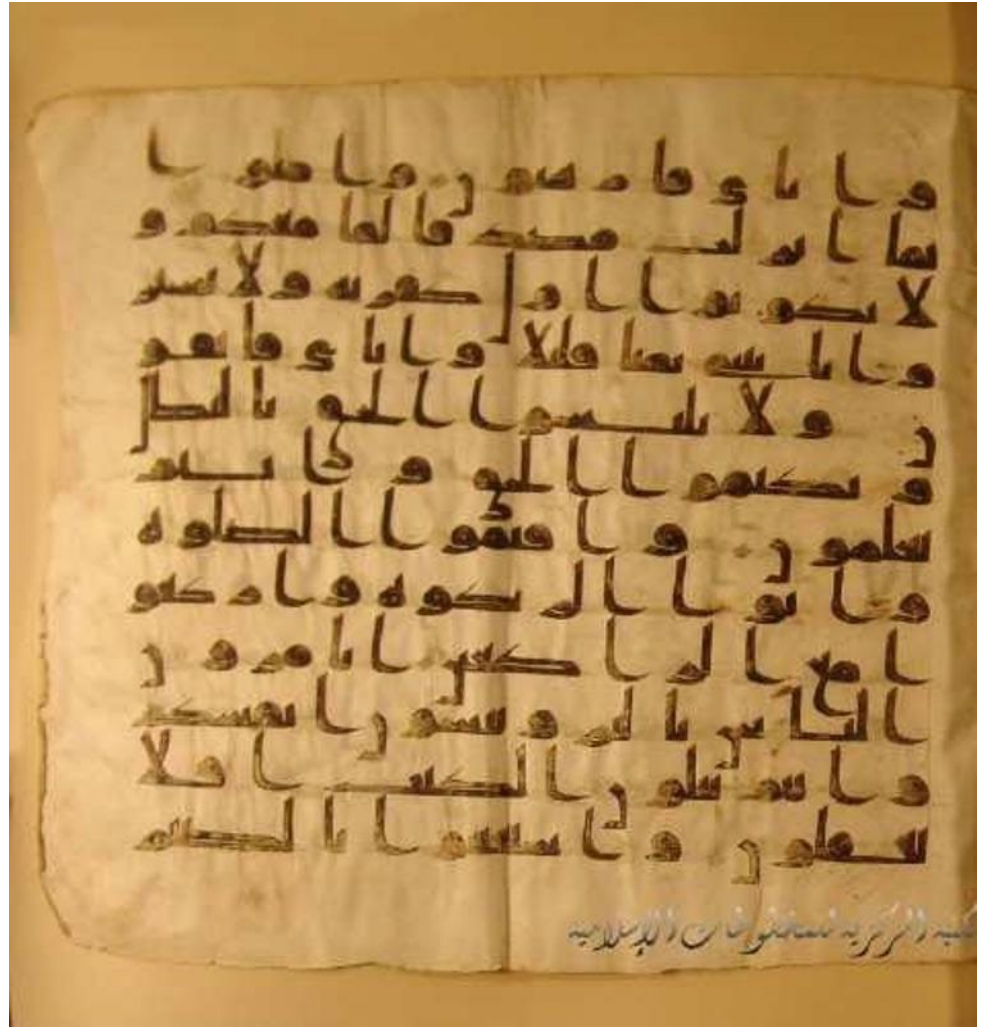 و ايى فا رهبو ن و ا منو ا
بما ا نز لت مصد قا لما معكم و
لا تكو نو ا ا و ل كفر به و لا تشتر
و ا با يتى ثمنا قليلا و ا يى فا تقو
ن و لا تلبسو ا ا لحق با لبطل
و تكتمو ا ا لحق و ا نتم
تعلمو ن و ا قيمو ا ا لصلو ه
و ا تو ا ا لز كو ه و ا ر كعو
ا مع ا لر ا كعين ا تا مر و ن
ا لنا س با لبر و تنسو ن ا نفسكم
و ا نتم تتلو ن ا لكتب ا فلا
تعقلو ن و ا ستعينو ا با لصبر
كتبة المركزية للمخطوطات الإسلامية